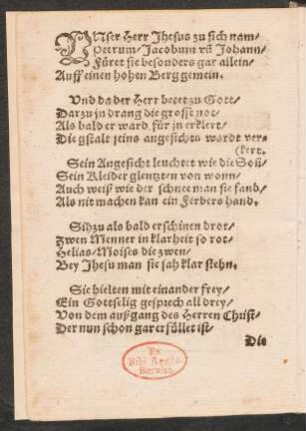 VNser Herr Jhesus zu sich nam/
Petrum/Jacobum vñ Johann/
Füret sie besonders gar allein/
Auff einen hohen Berg gemein.
Vnd da der Herr betet zu Gott/
Darzu jn drang die grosse not/
Als bald er ward für jn erklert/
Die gstalt seins angesichts wardt ver⸗
(kert.
Sein Angesicht leuchtet wie die Soñ/
Sein Kleider glentzten von wonn/
Auch weiß wie der schnee man sie fand/
Als nit machen kan ein Ferbers hand.
Sihzu als bald erschinen drot/
Zwen Menner in klarheit so rot/
Helias/Moises die zwen/
Bey Jhesu man sie sah klar stehn.
Sie hielten mit einander frey/
Ein Gottselig gesprech all drey/
Von dem außgang des Herren Christ/
Der nun schon gar erfüllet ist/
Die
Ex
Bibl. Regia
Berolin.